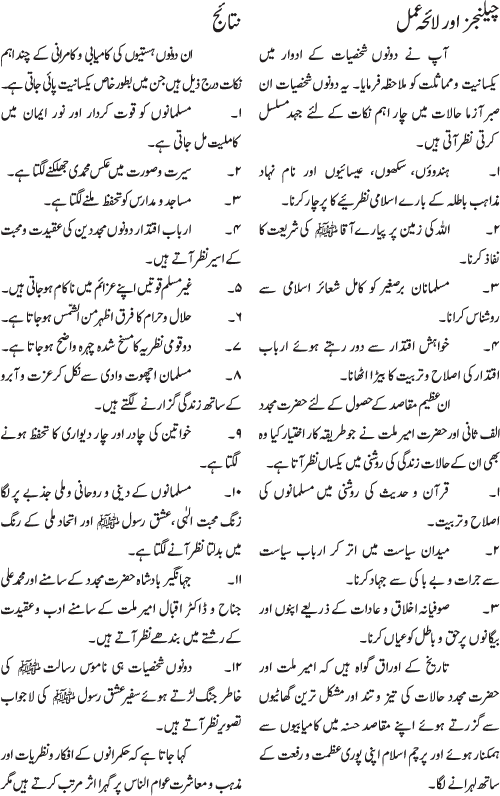 چیلنجز اور لائحہ عمل
آپ نے دونوں شخصیات کے ادوار میں
یکسانیت و مماثلت کو ملاحظہ فرمایا۔ یہ دونوں شخصیات ان
صبر آزما حالات میں چار اہم نکات کے لئے جہد مسلسل
کرتی نظر آتی ہیں۔
۱۔ ہندوؤں، سکھوں، عیسائیوں اور نام نہاد
مذاہب باطلہ کے بارے اسلامی نظریئے کا پرچار کرنا۔
۲۔ اللہ کی زمین پر پیارے آقا ﷺ کی شریعت کا
نفاذ کرنا۔
۳۔ مسلمانان برصغیر کو کامل شعائر اسلامی سے
روشناس کرانا۔
۴۔ خواہش اقتدار سے دور رہتے ہوئے ارباب
اقتدار کی اصلاح و تربیت کا بیڑا اٹھانا۔
ان عظیم مقاصد کے حصول کے لئے حضرت مجدد
الف ثانی اور حضرت امیر ملت نے جو طریقہ کار اختیار کیا وہ
بھی ان کے حالات زندگی کی روشنی میں یکساں نظر آتا ہے۔
۱۔ قرآن و حدیث کی روشنی میں مسلمانوں کی
اصلاح و تربیت۔
۲۔ میدان سیاست میں اتر کر ارباب سیاست
سے جرات و بے باکی سے جہاد کرنا۔
۳۔ صوفیانہ اخلاق و عادات کے ذریعے اپنوں اور
بیگانوں پر حق و باطل کو عیاں کرنا۔
تاریخ کے اوراق گواہ ہیں کہ امیر ملت اور
حضرت مجدد حالات کی تیز و تند اور مشکل ترین گھاٹیوں
سے گزرتے ہوئے اپنے مقاصد حسنہ میں کامیابیوں سے
ہمکنار ہوئے اور پرچم اسلام اپنی پوری عظمت و رفعت کے
ساتھ لہرانے لگا۔
نتائج
ان دونوں ہستیوں کی کامیابی و کامرانی کے چند اہم
نکات درج ذیل ہیں جن میں بطور خاص یکسانیت پائی جاتی ہے۔
۱۔ مسلمانوں کو قوت کردار اور نور ایمان میں
کاملیت مل جاتی ہے۔
۲۔ سیرت و صورت میں عکس محمدی جھلکنے لگتا ہے۔
۳۔ مساجد و مدارس کو تحفظ ملنے لگتا ہے۔
۴۔ ارباب اقتدار دونوں مجددین کی عقیدت و محبت
کے اسیر نظر آتے ہیں۔
۵۔ غیر مسلم قوتیں اپنے عزائم میں ناکام ہو جاتی ہیں۔
۶۔ حلال و حرام کا فرق اظہر من الشمس ہو جاتا ہے۔
۷۔ دو قومی نظریہ کا مسخ شدہ چہرہ واضح ہو جاتا ہے۔
۸۔ مسلمان اچھوت وادی سے نکل کر عزت و آبرو
کے ساتھ زندگی گزارنے لگتے ہیں۔
۹۔ خواتین کی چادر اور چار دیواری کا تحفظ ہونے
لگتا ہے۔
۱۰۔ مسلمانوں کے دینی و روحانی و ملی جذبے پر لگا
زنگ محبت الٰہی، عشق رسول ﷺ اور اتحاد ملی کے رنگ
میں بدلتا نظر آنے لگتا ہے۔
۱۱۔ جہانگیر بادشاہ حضرت مجدد کے سامنے اور محمد علی
جناح و ڈاکٹر اقبال امیر ملت کے سامنے ادب و عقیدت
کے رشتے میں بندھے نظر آتے ہیں۔
۱۲۔ دونوں شخصیات ہی ناموس رسالت ﷺ کی
خاطر جنگ لڑتے ہوئے سفیر عشق رسول ﷺ کی لاجواب
تصویر نظر آتے ہیں۔
کہا جاتا ہے کہ حکمرانوں کے افکار و نظریات اور
مذہب و معاشرت عوام الناس پر گہرا اثر مرتب کرتے ہیں مگر